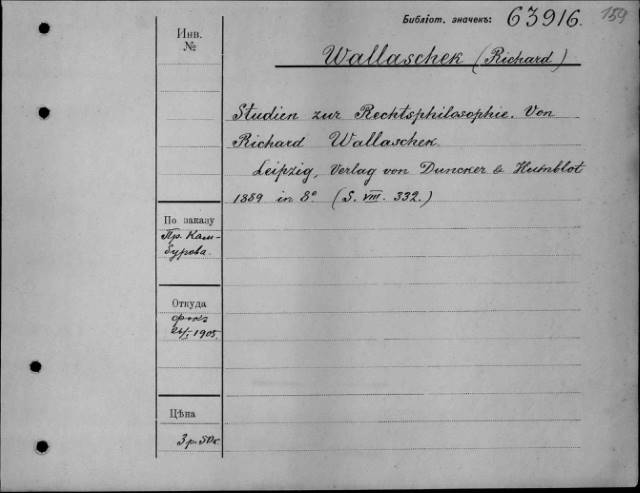 Библіот. значекъ: 63916. 159
Инв.
№
Wallaschek (Richard)
Studien zur Rechtsphilosophie. Von
Richard Wallaschek.
Leipzig, Verlag von Duncker & Humblot
1889 in 8° (S. VIII. 332.)
По заказу
Пр. Кам-
бурова.
Откуда
26/I 1905.
Цѣна
3 р. 50 к.